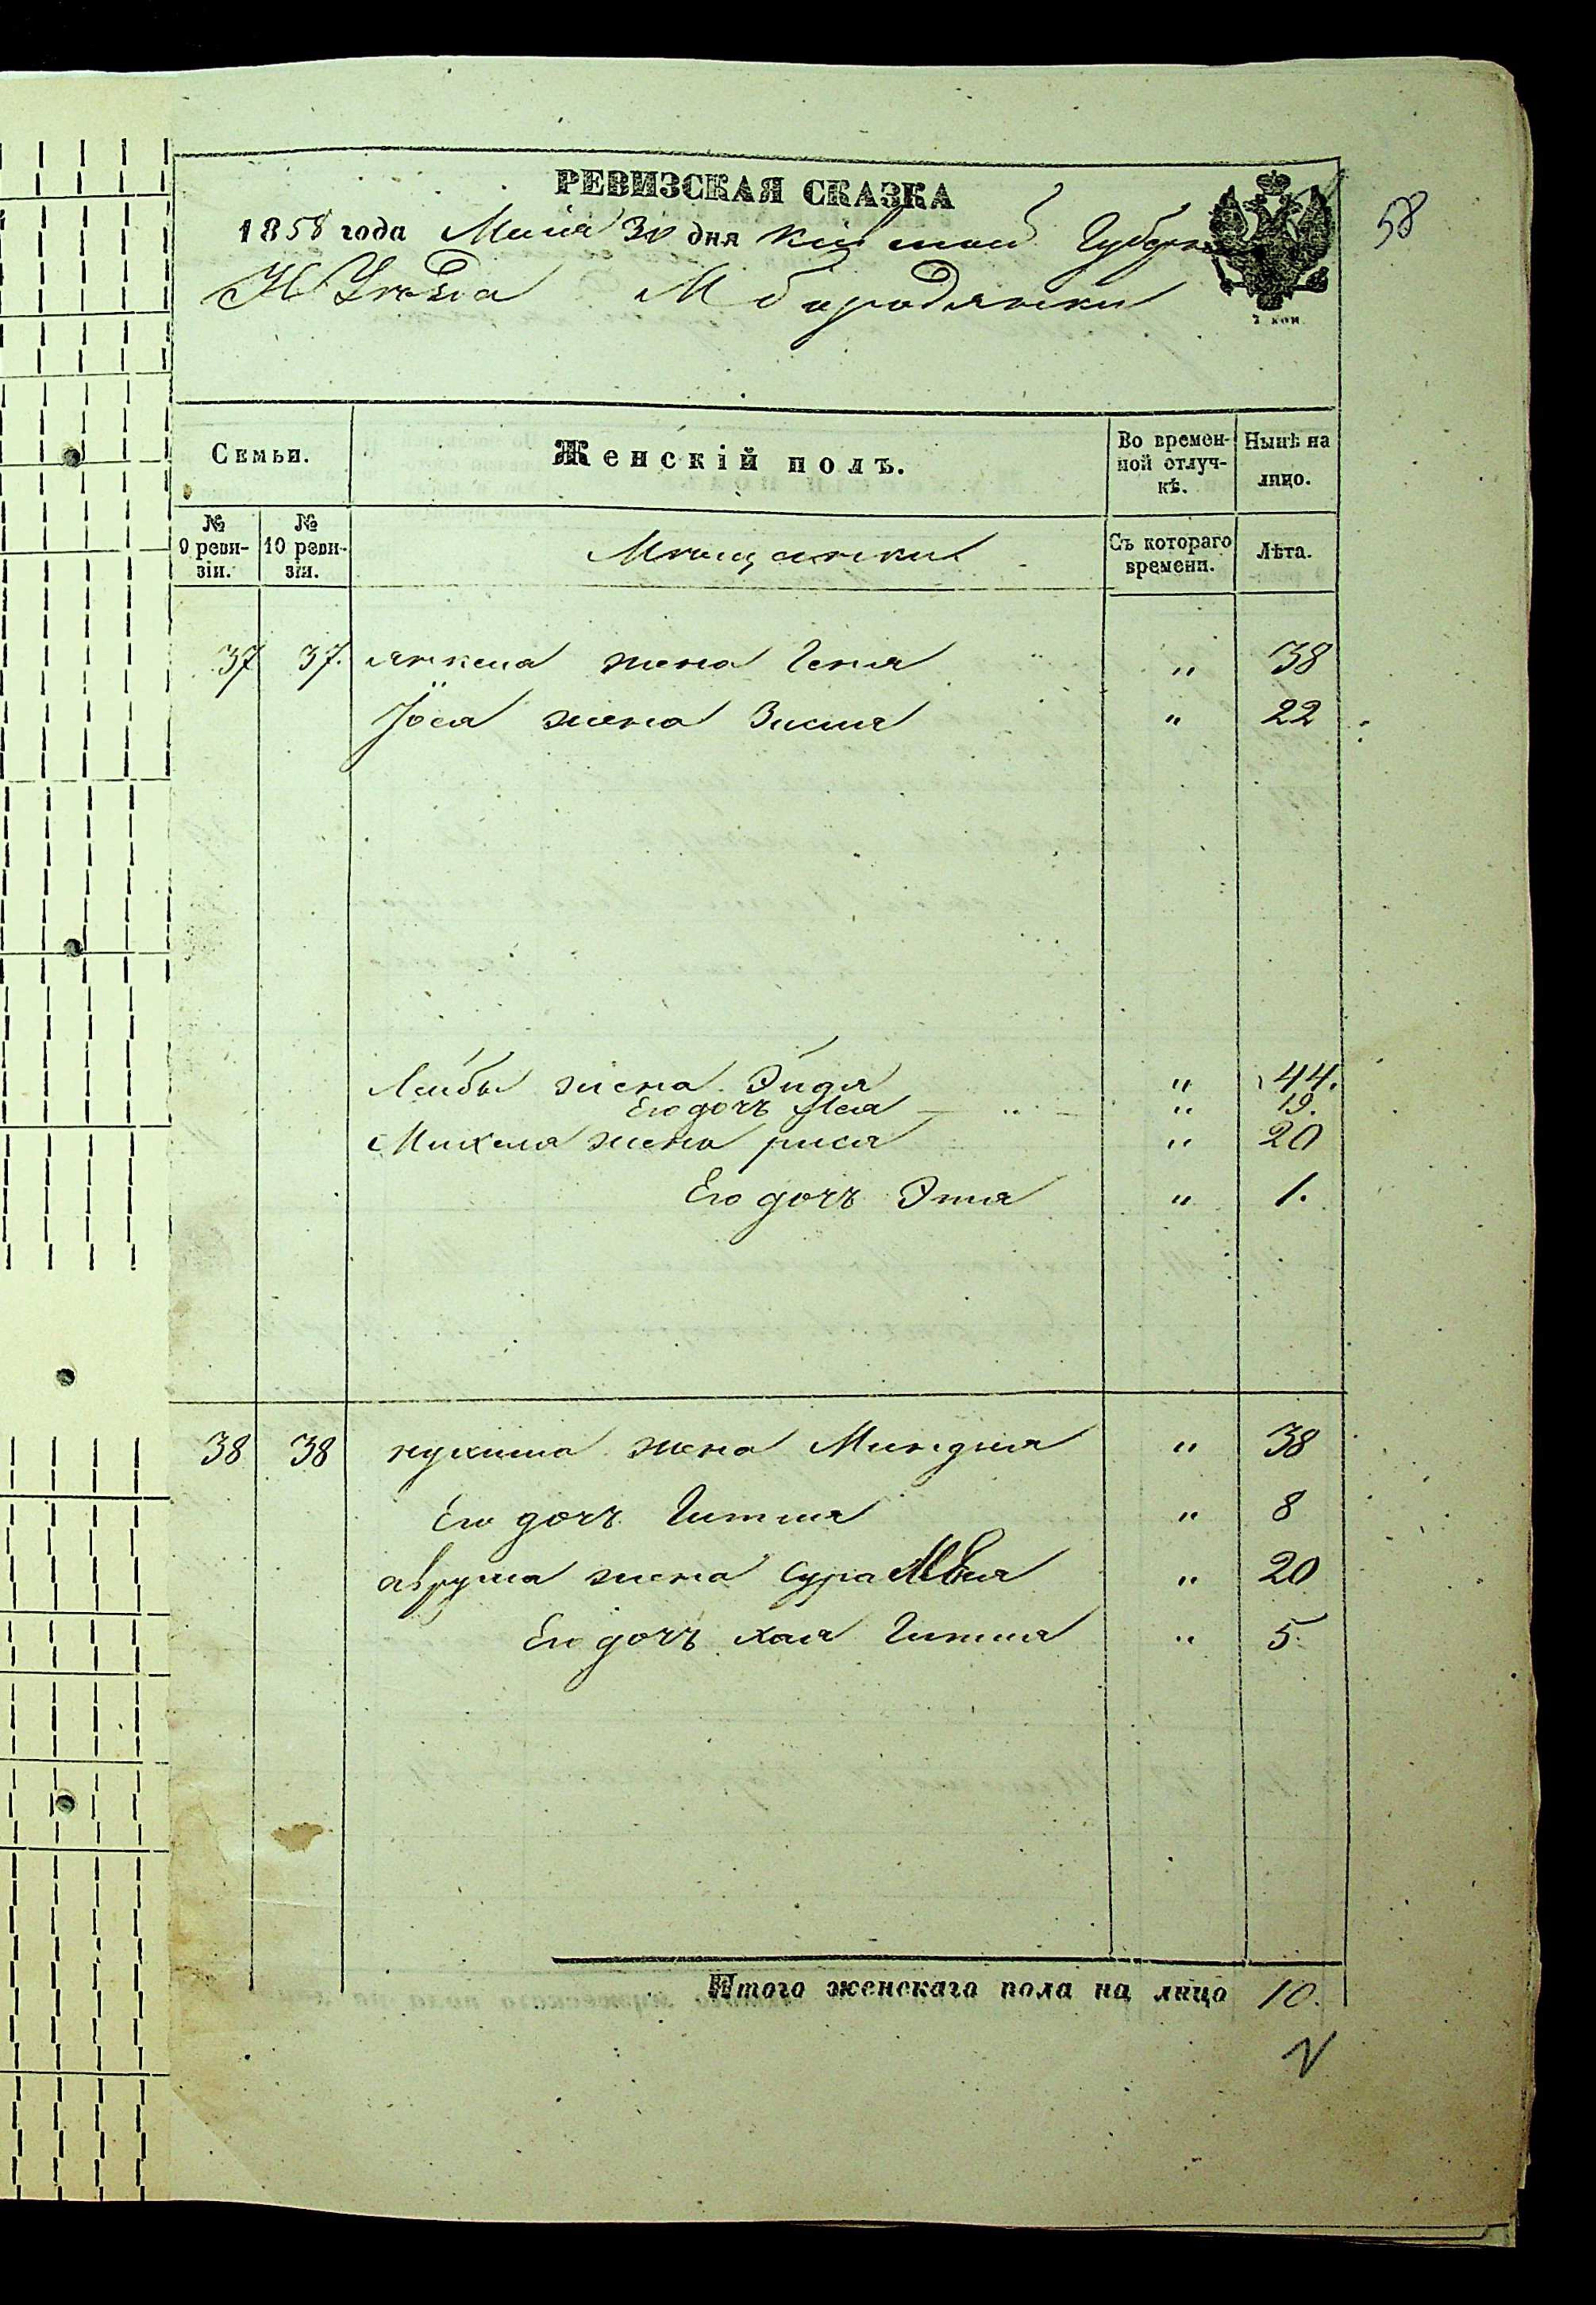 58
РЕВИЗСКАЯ СКАЗКА
1858 года Маія 30 дня Кіевской Губерн
К Уезда М бородянки
7 коп
Семьи. Женскій полъ. Во времен-ной отлуч-кѣ. Нынѣ на лицо.
№ 9 реви-зіи. № 10 реви-зіи. Мещанки Съ котораго времени. Лѣта.
37 37. янкеля жена Геня " 38
Іося жена Зисля " 22
Лейбы жена Эйдя " 44.
Его дочь " 19.
Михеля жена рися " 20
Его дочь Этя " 1.
38 38 нухима жена Миндля " 38
Его дочь Гитля " 8
аврума жена Сура " 20
Его дочь хая Гитля " 5.
Итого женскаго пола на лицо 10.